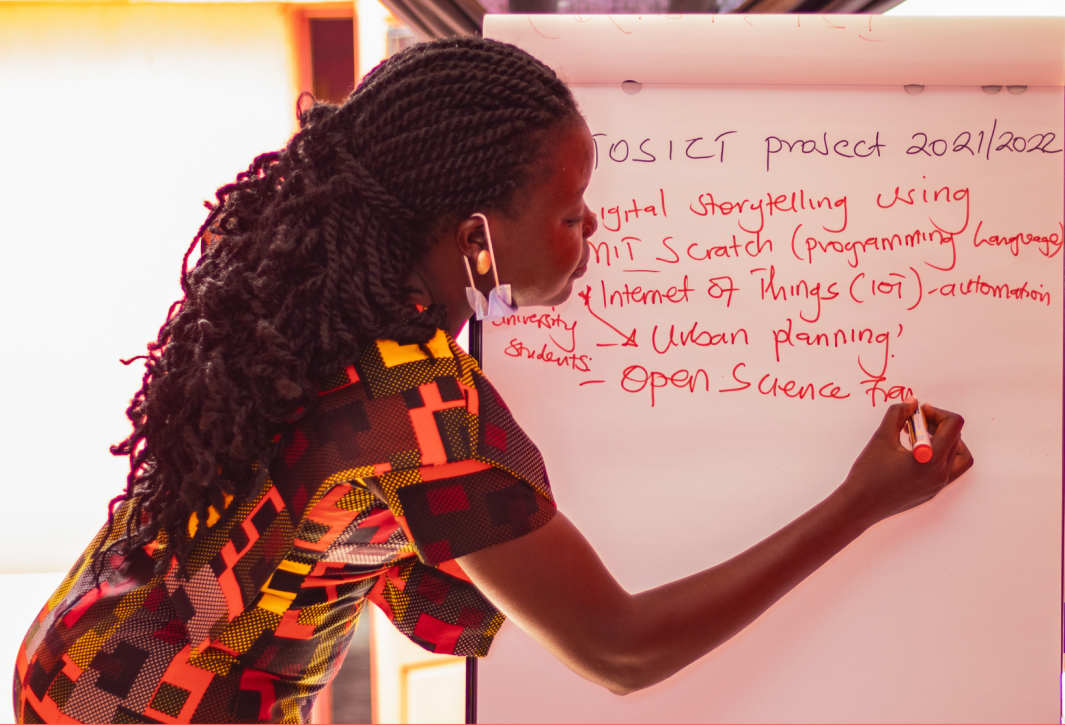 TOSICT project 2021/2022
igital storytelling using
MIT Scratch (programming Language)
Internet Of Things (IOT) - automation
University
Students:
Urban planning!
- Open Science Fra